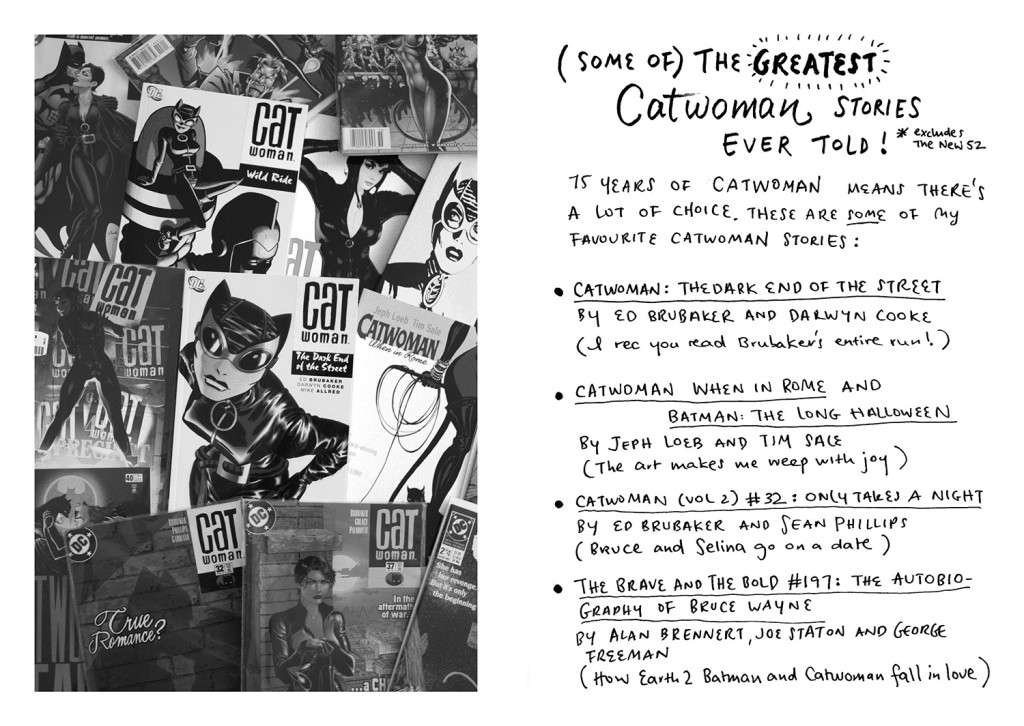 CAT
WOMAN
Wild Ride
CAT
CAT
WOMAN
CAT
WOMAN
CAT
WOMAN
The Dark End
of the Street
ED BRUBAKER
DARWYN COOKE
MIKE ALLRED
Jeph Loeb Tim Sale
CATWOMAN
When in Rome
DC
CAT
WOMAN
32
True
Romance?
DC
CAT
WOMAN
37
In the
aftermath
of war,
She has
her revenge.
But it's only
the beginning
(SOME OF) THE GREATEST
Catwoman STORIES
EVER TOLD! * excludes
THE NEW 52
75 YEARS OF CATWOMAN MEANS THERE'S
A LOT OF CHOICE. THESE ARE SOME OF MY
FAVOURITE CATWOMAN STORIES:
• CATWOMAN: THE DARK END OF THE STREET
BY ED BRUBAKER AND DARWYN COOKE
(I rec you read Brubaker's entire run!)
• CATWOMAN WHEN IN ROME AND
BATMAN: THE LONG HALLOWEEN
By JEPH LOEB AND TIM SALE
(The art makes me weep with joy)
• CATWOMAN (VOL 2) #32: ONLY TAKES A NIGHT
BY ED BRUBAKER AND SEAN PHILLIPS
(Bruce and Selina go on a date)
• THE BRAVE AND THE BOLD #197: THE AUTOBIO-
GRAPHY OF BRUCE WAYNE
BY ALAN BRENNERT, JOE STATON AND GEORGE
FREEMAN
(How Earth 2 Batman and Catwoman fall in love)